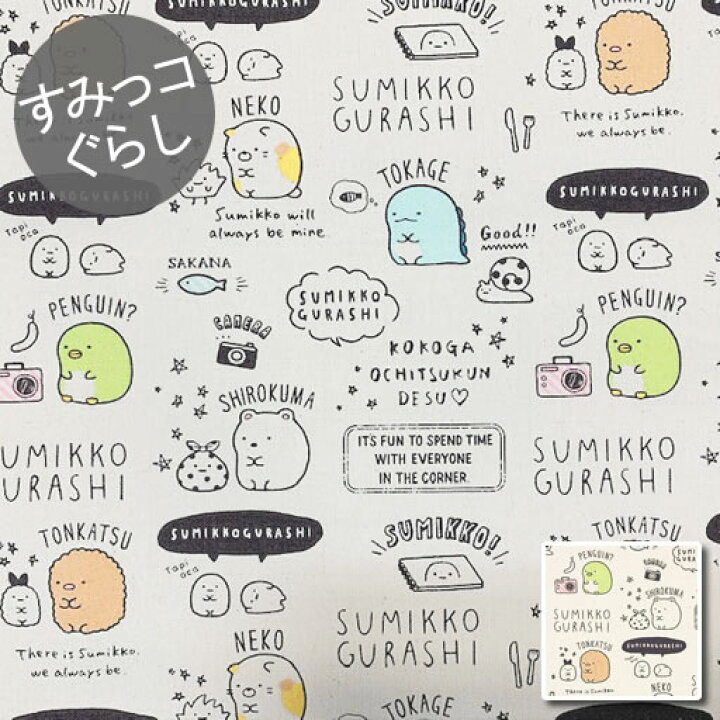 すみっコ
ぐらし
TONKATSU
SUMIKKO!
TONKATSU
NEKO
SUMIKKO
GURASHI
There is Sumikko.
we always be.
SUMIKKOGURASHI
TOKAGE
SUMIKKOGURASHI
Tapi
oca
Sumikko will
always be mine.
Good!!
Tapi
oca
SAKANA
PENGUIN?
SUMIKKO
GURASHI
PENGUIN?
CAMERA
KOKOGA
OCHITSUKUN
DESU♡
SHIROKUMA
UMIKKO
GURASHI
IT'S FUN TO SPEND TIME
WITH EVERYONE
IN THE CORNER.
SUMIKKO
GURASHI
TONKATSU
SUMIKKOGURASHI
SUMIKKO!
Tapi
oca
There is Sumikko.
we always be.
NEKO
SUMIKKO
GURASHI
TOKAGE
PENGUIN?
SHIROKUMA
SUMIKKO
GURASHI
TONKATSU
SUMIKKOGURASHI
There is Sumikko.
NEKO